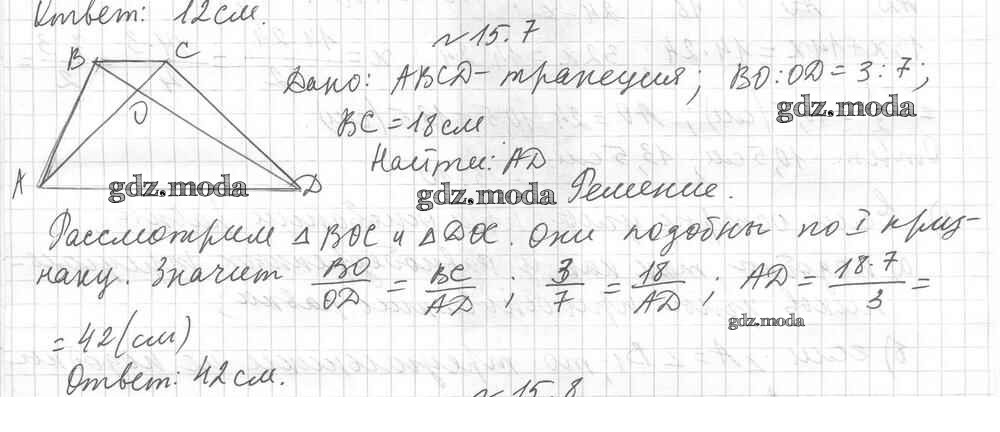 Ответ: 12см.
№15.7
B C
Дано: ABCD - трапеция; BO:OD = 3:7;
O
gdz.moda
BC = 18см
Найти: AD
A D
gdz.moda gdz.moda Решение.
Рассмотрим △ BOC и △ DOC. Они подобны по I приз-
наку. Значит BO/OD = BC/AD ; 3/7 = 18/AD ; AD = 18·7/3 =
gdz.moda
= 42(см)
Ответ: 42см.
№15.8